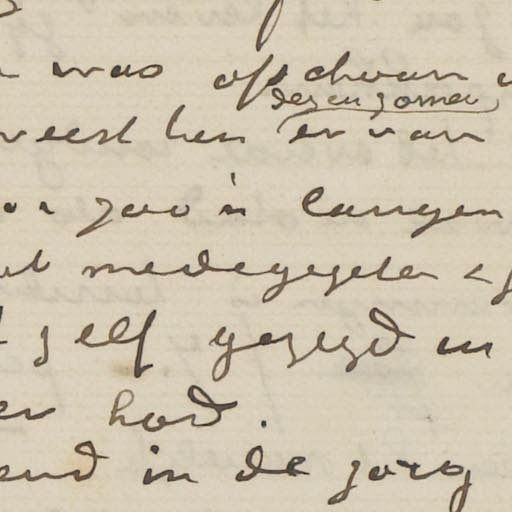 was opschoon
dezen zomer
weest ben er van
zoo'n langen
medegegeten
zelf gezegd en
had.
end in de zorg